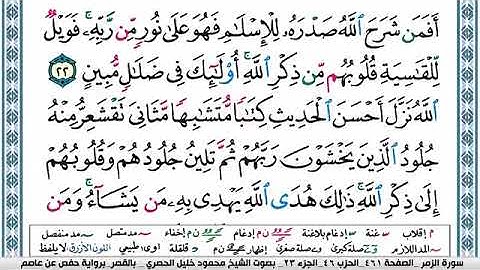 أَفَمَن شَرَحَ ٱللَّهُ صَدْرَهُۥ لِلْإِسْلَٰمِ فَهُوَ عَلَىٰ نُورٍ مِّن رَّبِّهِۦ ۚ فَوَيْلٌ
لِّلْقَٰسِيَةِ قُلُوبُهُم مِّن ذِكْرِ ٱللَّهِ ۚ أُو۟لَٰٓئِكَ فِى ضَلَٰلٍ مُّبِينٍ ٢٢
ٱللَّهُ نَزَّلَ أَحْسَنَ ٱلْحَدِيثِ كِتَٰبًا مُّتَشَٰبِهًا مَّثَانِىَ تَقْشَعِرُّ مِنْهُ
جُلُودُ ٱلَّذِينَ يَخْشَوْنَ رَبَّهُمْ ثُمَّ تَلِينُ جُلُودُهُمْ وَقُلُوبُهُمْ
إِلَىٰ ذِكْرِ ٱللَّهِ ۚ ذَٰلِكَ هُدَى ٱللَّهِ يَهْدِى بِهِۦ مَن يَشَآءُ ۚ وَمَن
م إقلاب س غنة س إدغام بلاغنة ن م إدغام ن م إخفاء مد متصل مد منفصل
مد اللازم صلة كبرى صلة صغرى إظهار ن م قلقلة اوى طبيعي اللون الأزرق لا يلفظ
سورة الزمر _الصفحة ٤٦١_ الحزب ٤٦_ الجزء ٢٣_ بصوت الشيخ محمود خليل الحصري _ بالقصر_برواية حفص عن عاصم